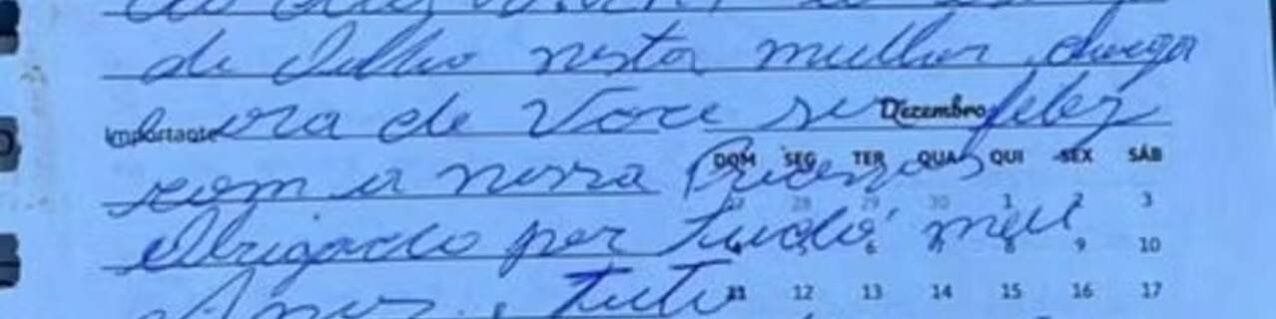 de Julho nesta mulher, chega
Dezembro
Importante
hora de Voce ser feliz
DOM SEG TER QUA QUI SEX SÁB
com a nossa Princesa
27 28 29 30 1 2 3
Obrigado por tudo meu
6 8 9 10
Amor, tuto
11 12 13 14 15 16 17